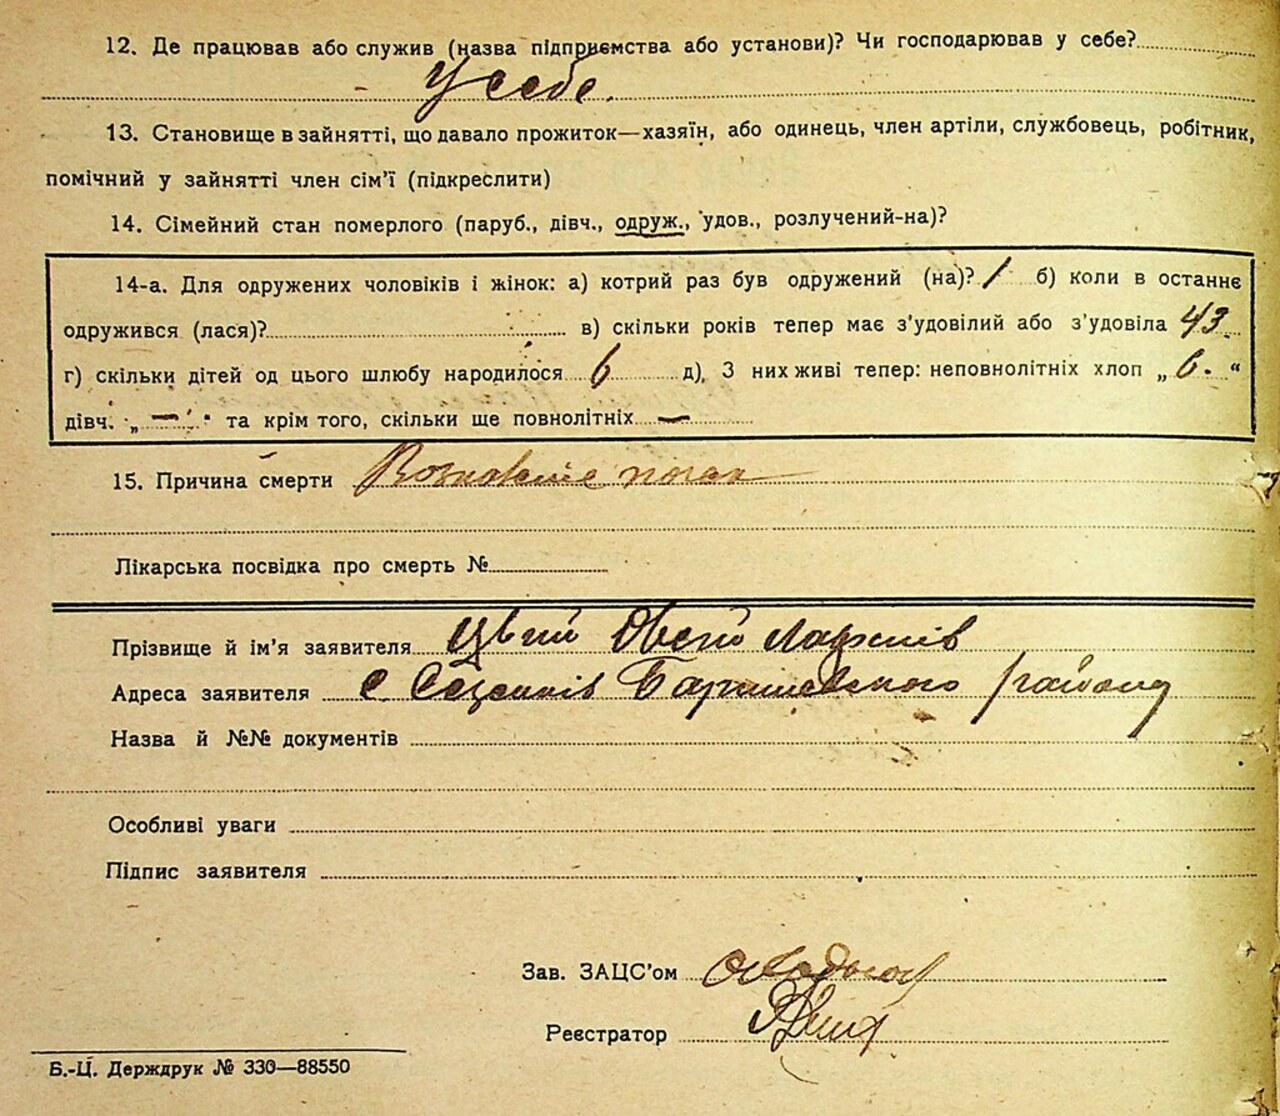 12. Де працював або служив (назва підприємства або установи)? Чи господарював у себе?
У себе.
13. Становище в зайнятті, що давало прожиток—хазяїн, або одинець, член артіли, службовець, робітник,
помічний у зайнятті член сім'ї (підкреслити)
14. Сімейний стан померлого (паруб., дівч., одруж., удов., розлучений-на)?
14-а. Для одружених чоловіків і жінок: а) котрий раз був одружений (на)? 1 б) коли в останнє
одружився (лася)? в) скільки років тепер має з'удовілий або з'удовіла 43
г) скільки дітей од цього шлюбу народилося 6 д), З них живі тепер: неповнолітніх хлоп „ 6. “
дівч. „ — “ та крім того, скільки ще повнолітніх —
15. Причина смерти
Лікарська посвідка про смерть №
Прізвище й ім'я заявителя Цвій Овсій
Адреса заявителя с Сезенків Баришевського району
Назва й №№ документів
Особливі уваги
Підпис заявителя
Зав. ЗАЦС'ом
Реєстратор
Б.-Ц. Держдрук № 330—88550